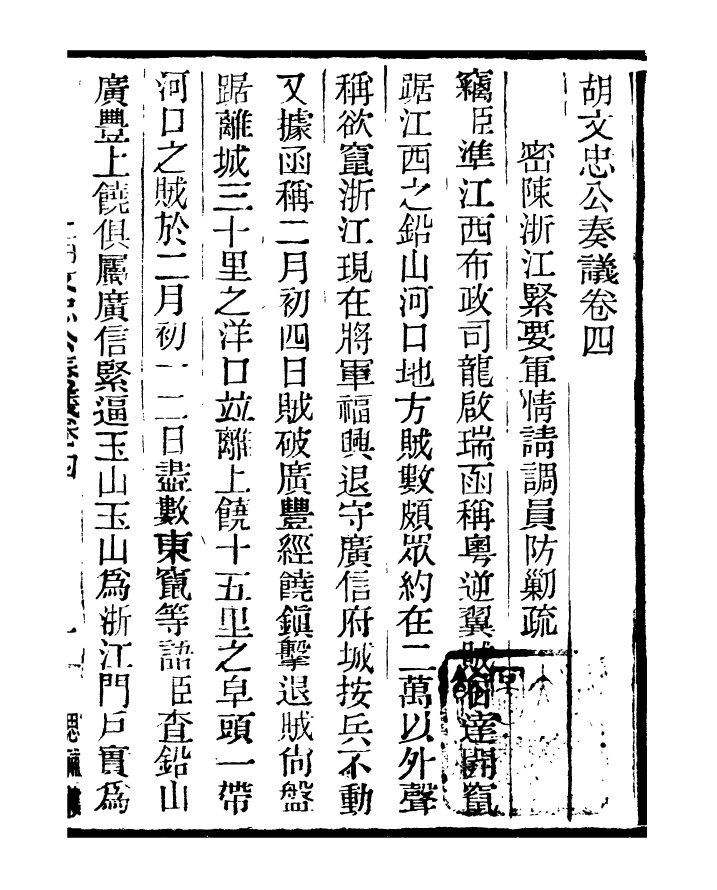 胡文忠公奏議卷四
密陳浙江緊要軍情請調員防勦疏
竊臣準江西布政司龍啟瑞函稱粵逆翼賊石達開竄
踞江西之鉛山河口地方賊數頗眾約在二萬以外聲
稱欲竄浙江現在將軍福興退守廣信府城按兵不動
又據函稱二月初四日賊破廣豐經饒鎮擊退賊尙盤
踞離城三十里之洋口竝離上饒十五里之皁頭一帶
河口之賊於二月初一二日盡數東竄等語臣查鉛山
廣豐上饒俱屬廣信緊逼玉山玉山爲浙江門戶實爲
文忠公奏議卷四